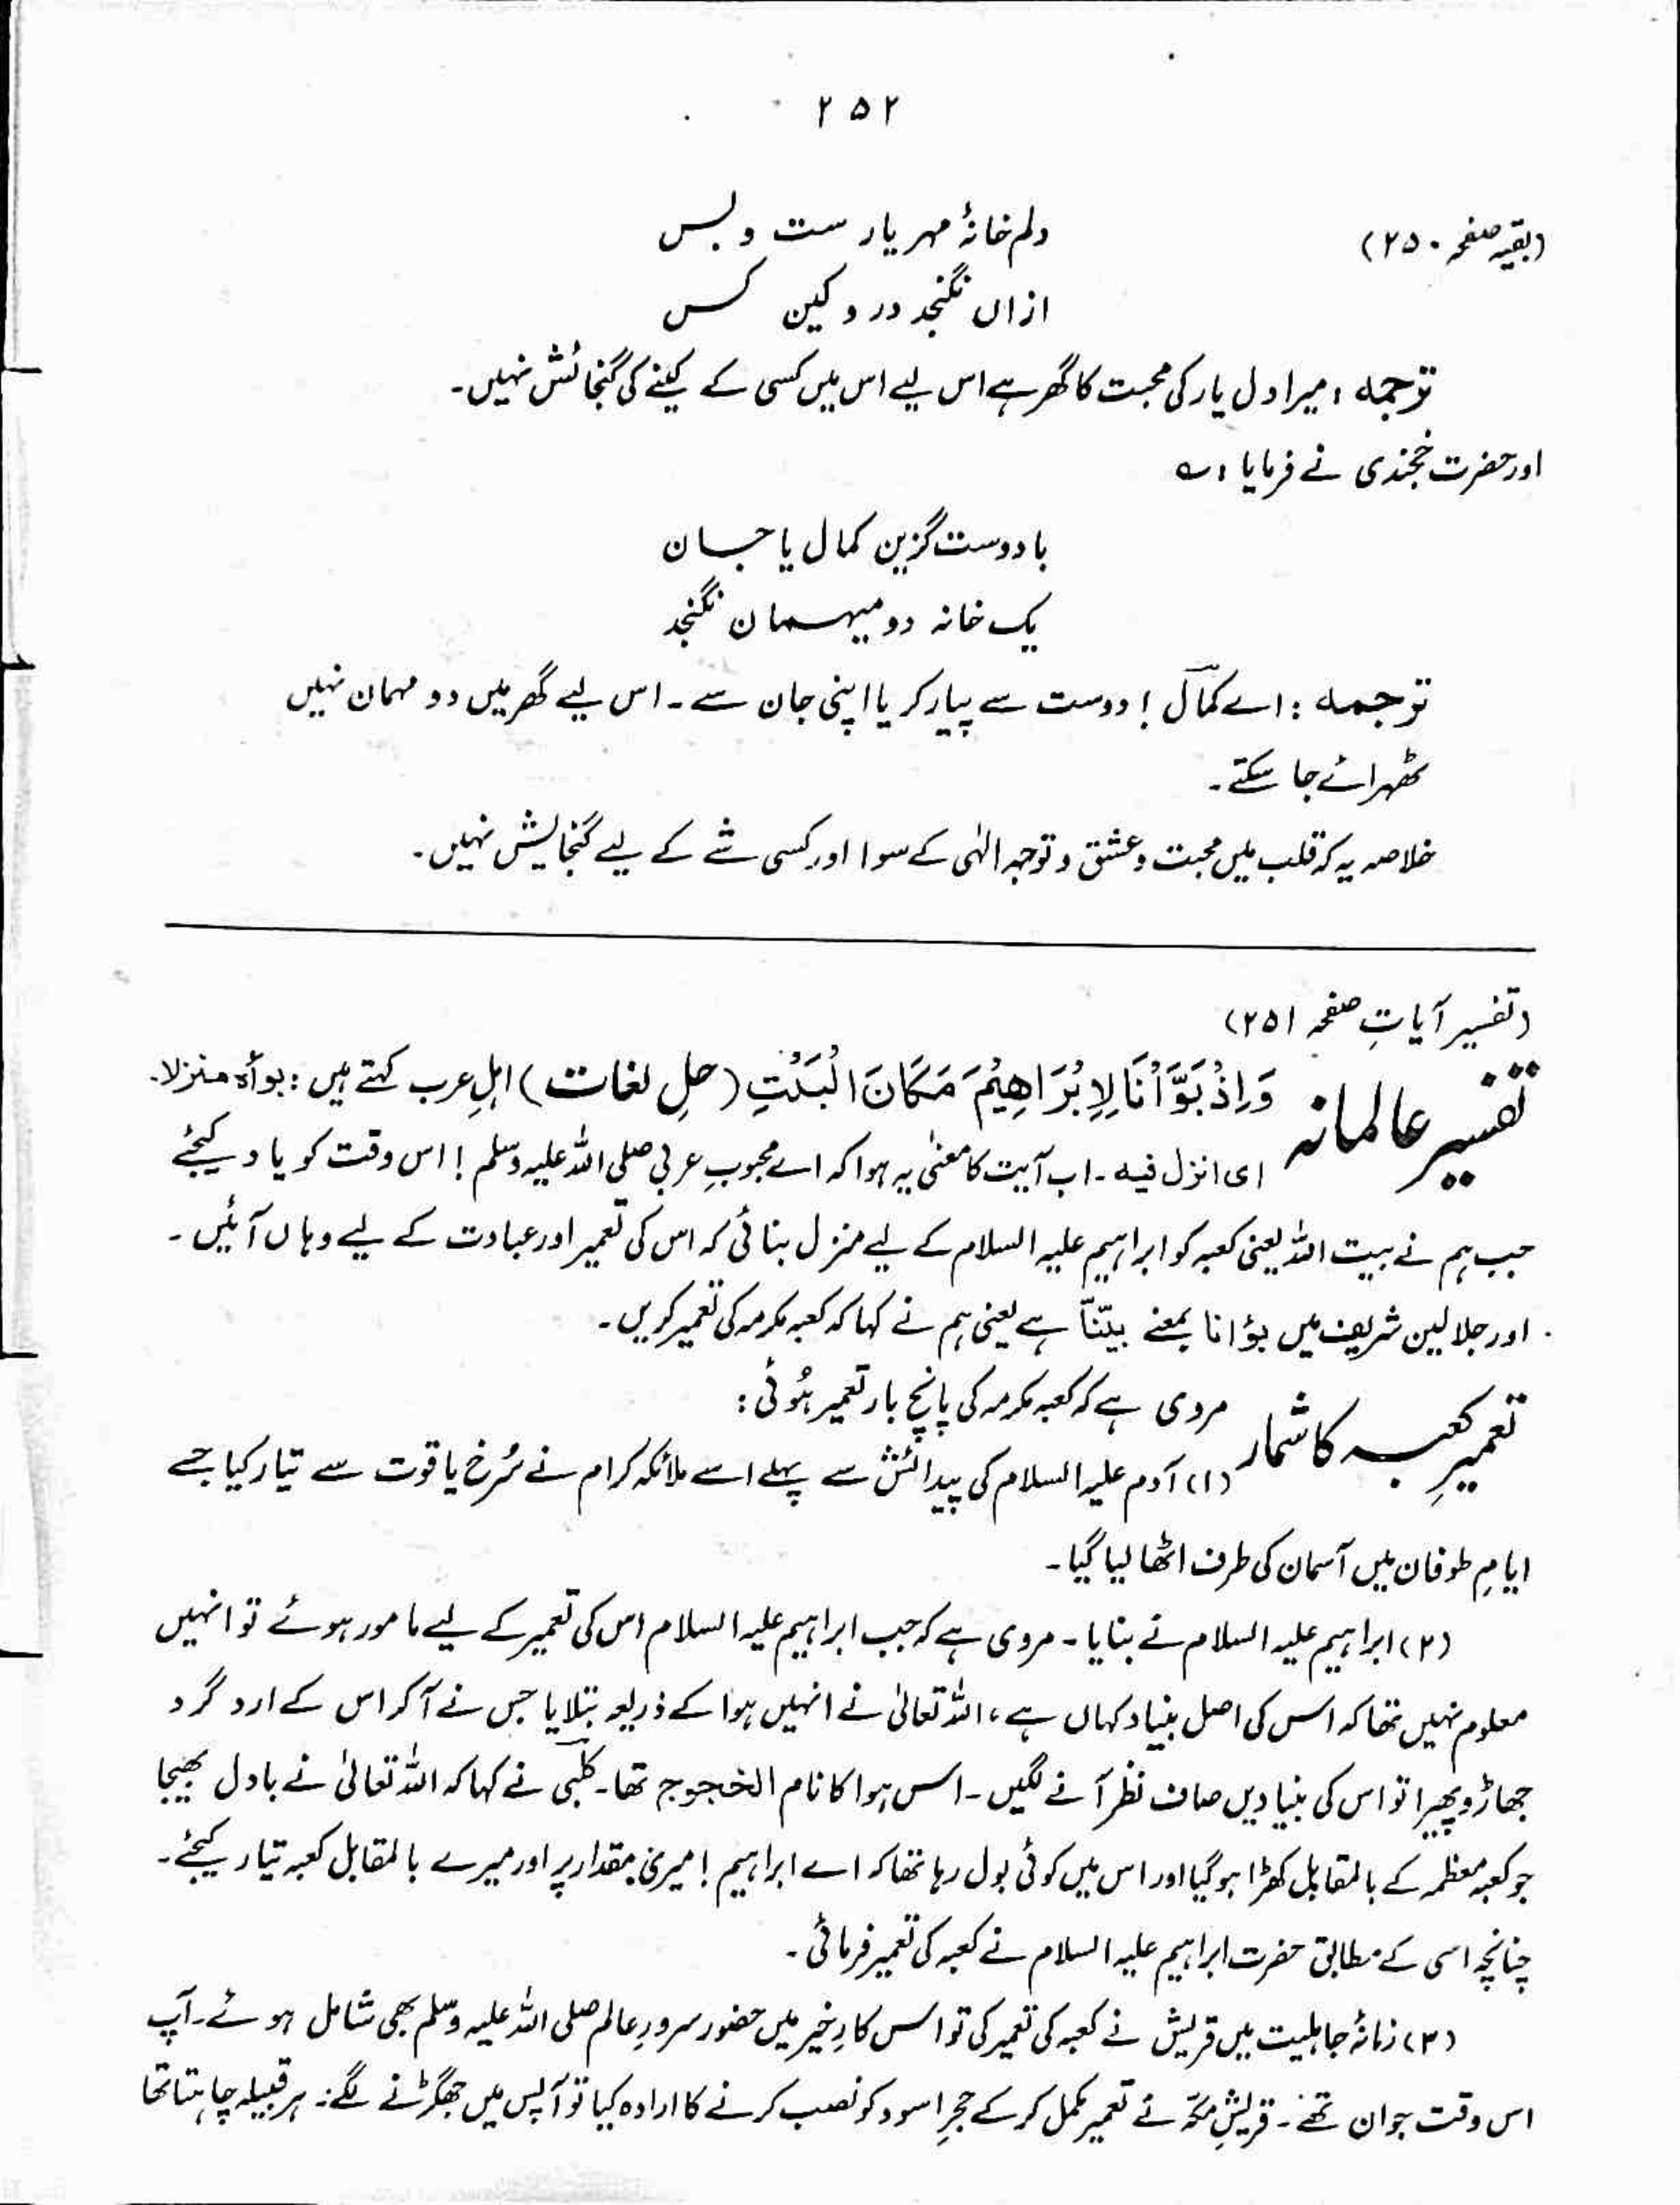 ۲۵۲
(بقیہ صفحہ ۲۵۰)
دلم خانۂ مہر یار ست و بس
ازاں نگنجد در و کین کس
ترجمہ : میرا دل یار کی محبت کا گھر ہے اس لیے اس میں کسی کے کینے کی گنجائش نہیں۔
اور حضرت خجندی نے فرمایا : ؎
با دوست گزین کمال یا جان
یک خانہ دو میہمان نگنجد
ترجمہ : اے کمالؔ ! دوست سے پیار کر یا اپنی جان سے۔ اس لیے گھر میں دو مہمان نہیں
ٹھہرائے جا سکتے۔
خلاصہ یہ کہ قلب میں محبت و عشق و توجہ الٰہی کے سوا اور کسی شے کے لیے گنجایش نہیں۔
(تفسیر آیاتِ صفحہ ۲۵۱)
تفسیر عالمانہ وَاِذْ بَوَّاْنَا لِاِبْرَاهِیْمَ مَکَانَ الْبَیْتِ (حلِ لغات) اہلِ عرب کہتے ہیں : بوأہ منزلا۔
ای انزل فیہ۔ اب آیت کا معنیٰ یہ ہوا کہ اے محبوبِ عربی صلی اللہ علیہ وسلم ! اس وقت کو یاد کیجئے
جب ہم نے بیت اللہ یعنی کعبہ کو ابراہیم علیہ السلام کے لیے منزل بنائی کہ اس کی تعمیر اور عبادت کے لیے وہاں آئیں۔
اور جلالین شریف میں بؤانا بمعنے بیّنّا ہے یعنی ہم نے کہا کہ کعبہ مکرمہ کی تعمیر کریں۔
تعمیرِ کعبہ کا شمار مروی ہے کہ کعبہ مکرمہ کی پانچ بار تعمیر ہُوئی :
(۱) آدم علیہ السلام کی پیدائش سے پہلے اسے ملائکہ کرام نے سُرخ یاقوت سے تیار کیا جسے
ایامِ طوفان میں آسمان کی طرف اٹھا لیا گیا۔
(۲) ابراہیم علیہ السلام نے بنایا۔ مروی ہے کہ جب ابراہیم علیہ السلام اس کی تعمیر کے لیے مامور ہوئے تو انہیں
معلوم نہیں تھا کہ اس کی اصل بنیاد کہاں ہے، اللہ تعالیٰ نے انہیں ہوا کے ذریعہ بتلایا جس نے آکر اس کے ارد گرد
جھاڑو پھیرا تو اس کی بنیادیں صاف نظر آنے لگیں۔ اس ہوا کا نام الخجوج تھا۔ کلبی نے کہا کہ اللہ تعالیٰ نے بادل بھیجا
جو کعبہ معظمہ کے بالمقابل کھڑا ہو گیا اور اس میں کوئی بول رہا تھا کہ اے ابراہیم ! میری مقدار پر اور میرے بالمقابل کعبہ تیار کیجئے۔
چنانچہ اسی کے مطابق حضرت ابراہیم علیہ السلام نے کعبہ کی تعمیر فرمائی۔
(۳) زمانۂ جاہلیت میں قریش نے کعبہ کی تعمیر کی تو اس کارِ خیر میں حضور سرورِ عالم صلی اللہ علیہ وسلم بھی شامل ہوئے۔ آپ
اس وقت جوان تھے۔ قریشِ مکہ نے تعمیر مکمل کر کے حجرِ اسود کو نصب کرنے کا ارادہ کیا تو آپس میں جھگڑنے لگے۔ ہر قبیلہ چاہتا تھا